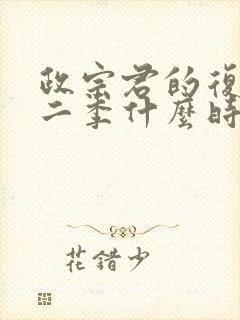 政宗君的復
二季什麼時
花錯少